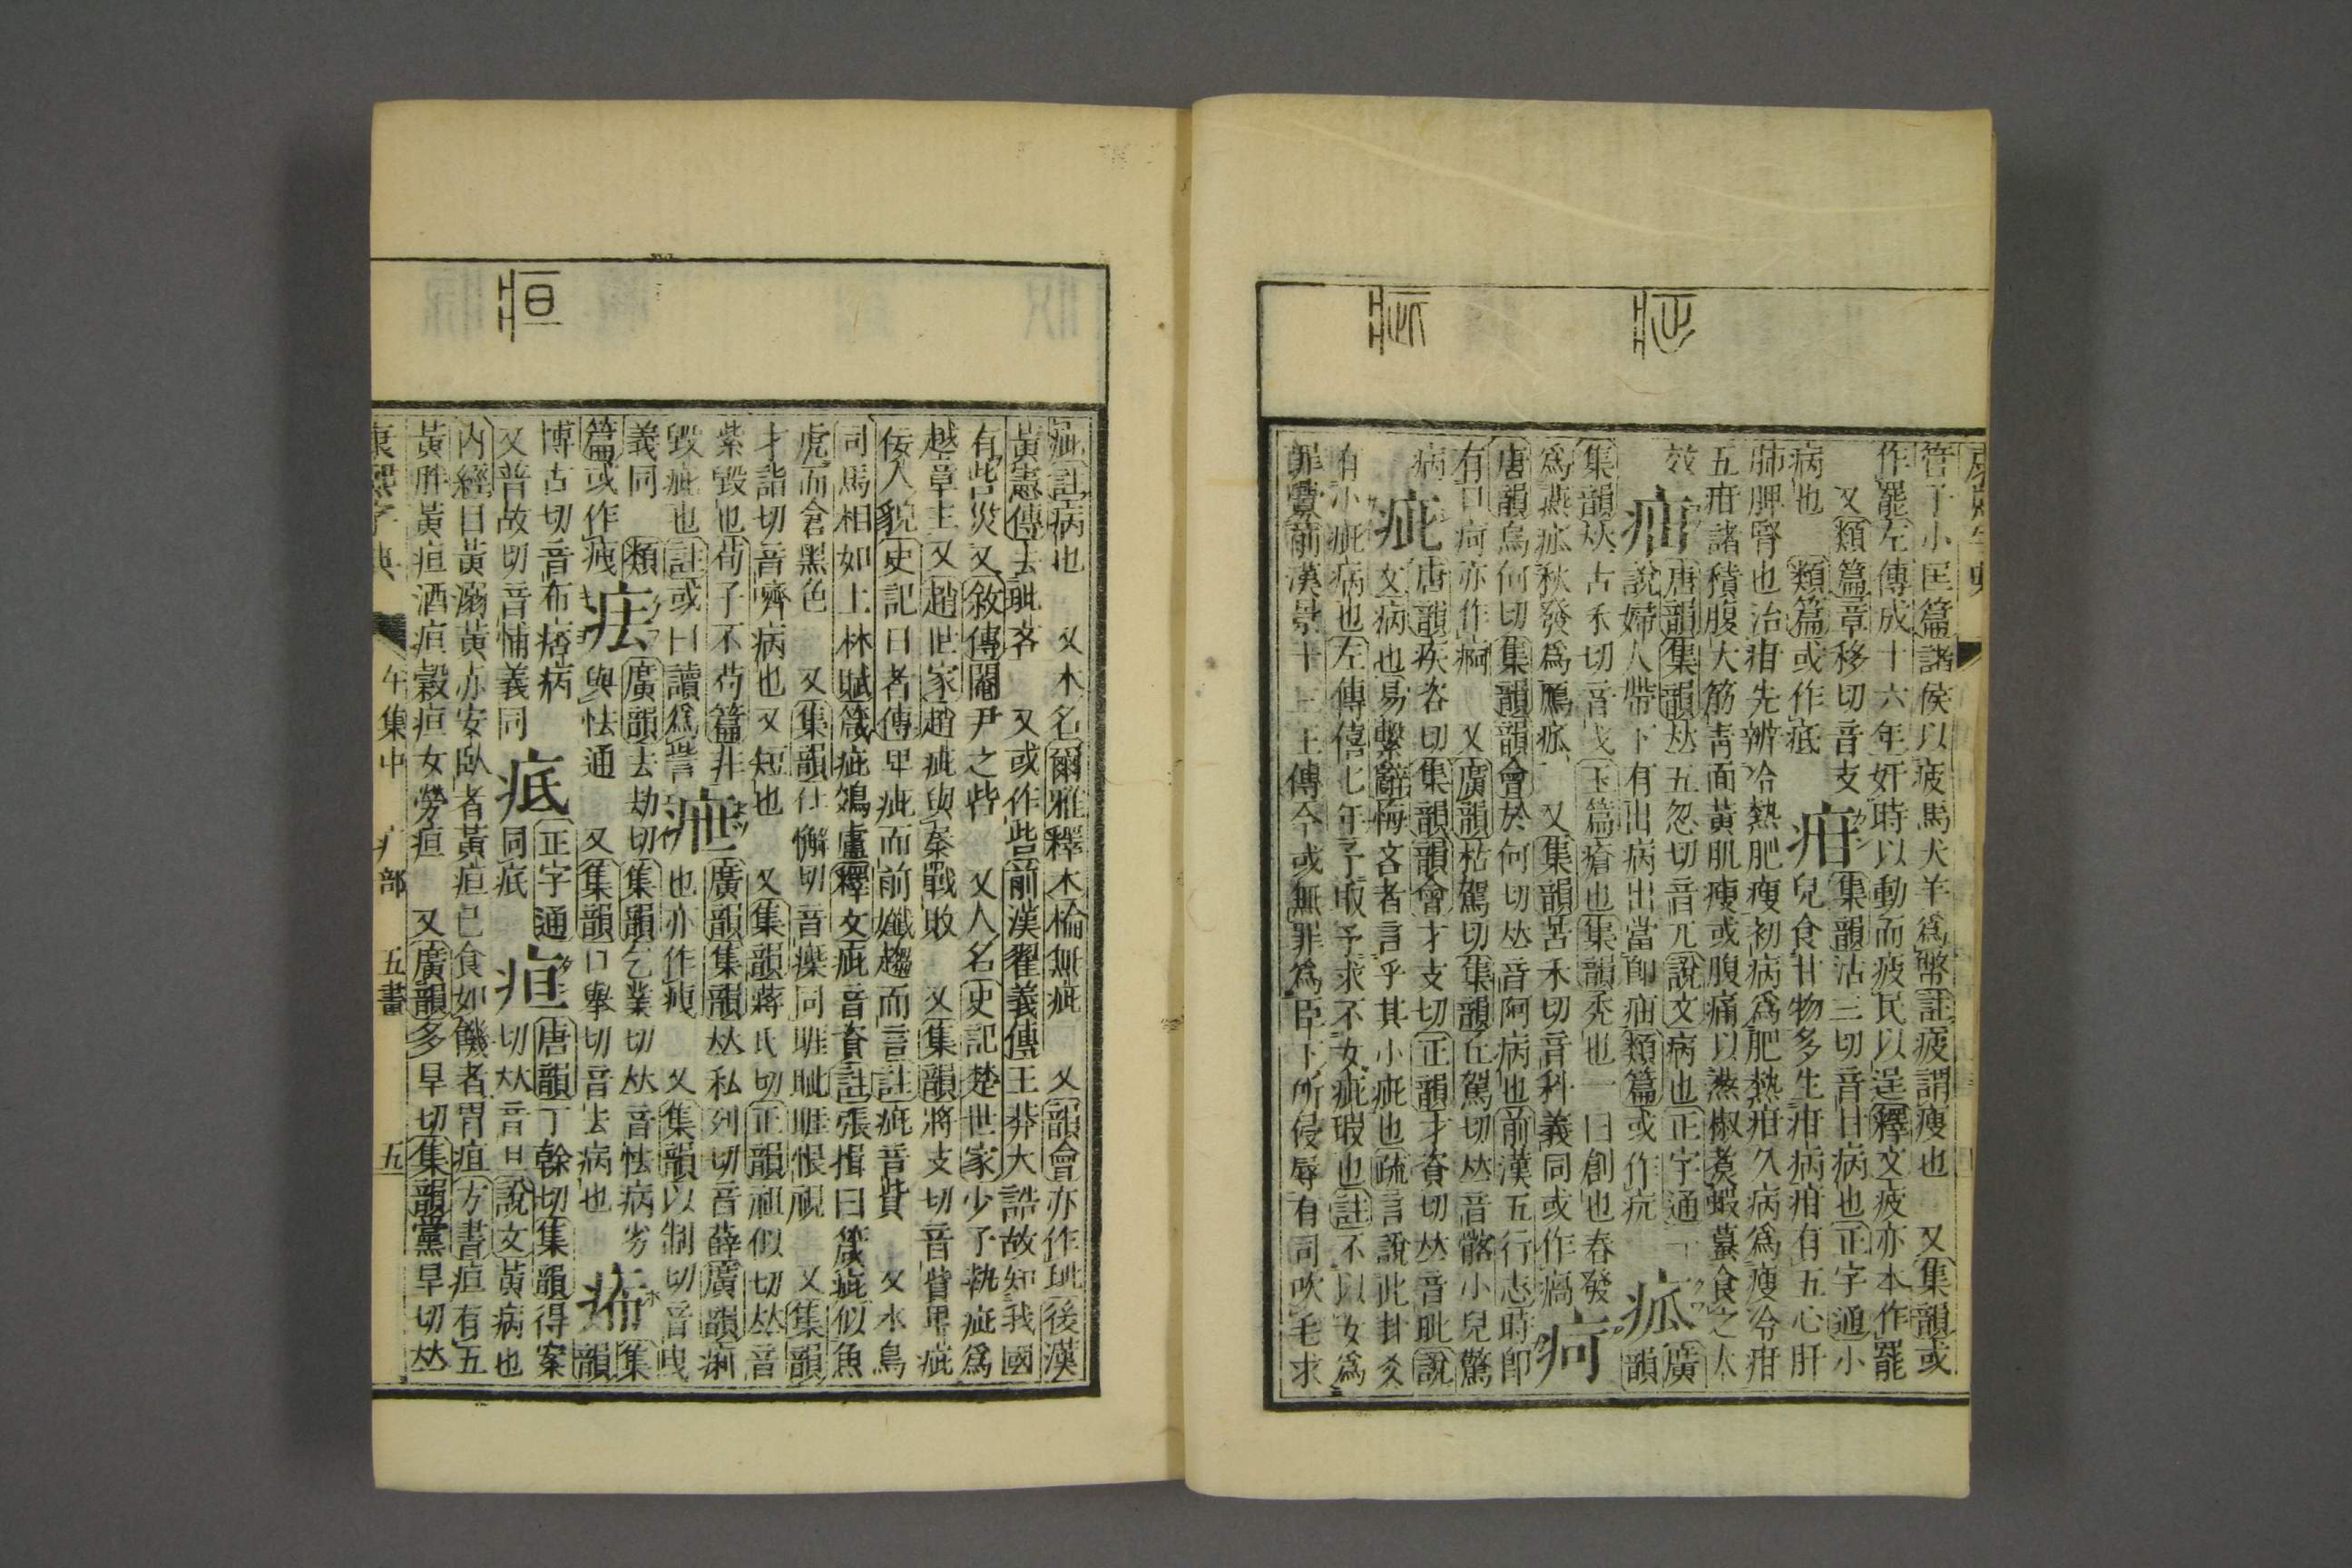 管子小匡篇諸侯以疲馬犬羊爲幣註疲謂瘦也又集韻或
作罷左傳成十六年奸時以動而疲民以逞釋文疲亦本作罷
又類篇章移切音支
病也類篇或作疧
疳
集韻沽三切音甘病也正字通小
兒食甘物多生疳病疳有五心肝
肺脾腎也治疳先辨冷熱肥瘦初病爲肥熱疳久病爲瘦冷疳
五疳諸積腹大筋靑面黃肌瘦或腹痛以蒸椒煑蝦蟇食之大
效
唐韻集韻𠀤五忽切音兀說文病也正字通一
說婦人帶下有出病出當卽類篇或作
𤵒
廣
韻
集韻𠀤古禾切音戈玉篇瘡也集韻禿也一曰創也春發
爲燕𤵒秋發爲鴈𤵒又集韻苦禾切音科義同或作瘑
疴
唐韻烏何切集韻韻會於何切𠀤音阿病也前漢五行志時卽
有口疴亦作痾又廣韻枯駕切集韻丘駕切𠀤音髂小兒驚
病
疵
唐韻疾咨切集韻韻會才支切正韻才資切𠀤音玼說
文病也易繫辭悔吝者言乎其小疵也疏言說此卦爻
有小疵病也左傳僖七年予取予求不女疵瑕也註不以女爲
罪釁前漢景十三王傳今或無罪爲臣下所侵辱有司吹毛求
疵註病也又木名爾雅釋木棆無疵又韻會亦作玼後漢
黃憲傳去玼吝又或作呰前漢翟義傳王莽大誥故知我國
有呰災又敘傳閹尹之呰又人名史記楚世家少子執疵爲
越章王又趙世家趙疵與秦戰敗又集韻將支切音貲畢疵
佞人貌史記日者傳卑疵而前孅趨而言註疵音貲又水鳥
司馬相如上林賦箴疵鵁盧釋文疵音資註張揖曰箴疵似魚
虎而倉黑色又集韻仕懈切音瘵同眦睚恨視又集韻
才詣切音嚌病也又短也又集韻蔣氏切正韻祖似切𠀤音
紫毀也荀子不苟篇非
毀疵也註或曰讀爲訾
疶
廣韻集韻𠀤私列切音薛廣韻痢
也亦作㾐又集韻以制切音曳
義同類
篇或作㾐
㾀
廣韻去劫切集韻乞業切𠀤音怯病劣
與怯通又集韻口舉切音去病也
㾈
集
韻
博古切音布痞病
又普故切音怖義同
疷
正字通
同疧
疸
唐韻丁榦切集韻得案
切𠀤音旦說文黃病也
內經曰黃溺黃赤安臥者黃疸已食如饑者胃疸方書疸有五
黃胖黃疸酒疸穀疸女勞疸又廣韻多旱切集韻黨旱切𠀤
康熙字典 午集中 疒部 五畫 五